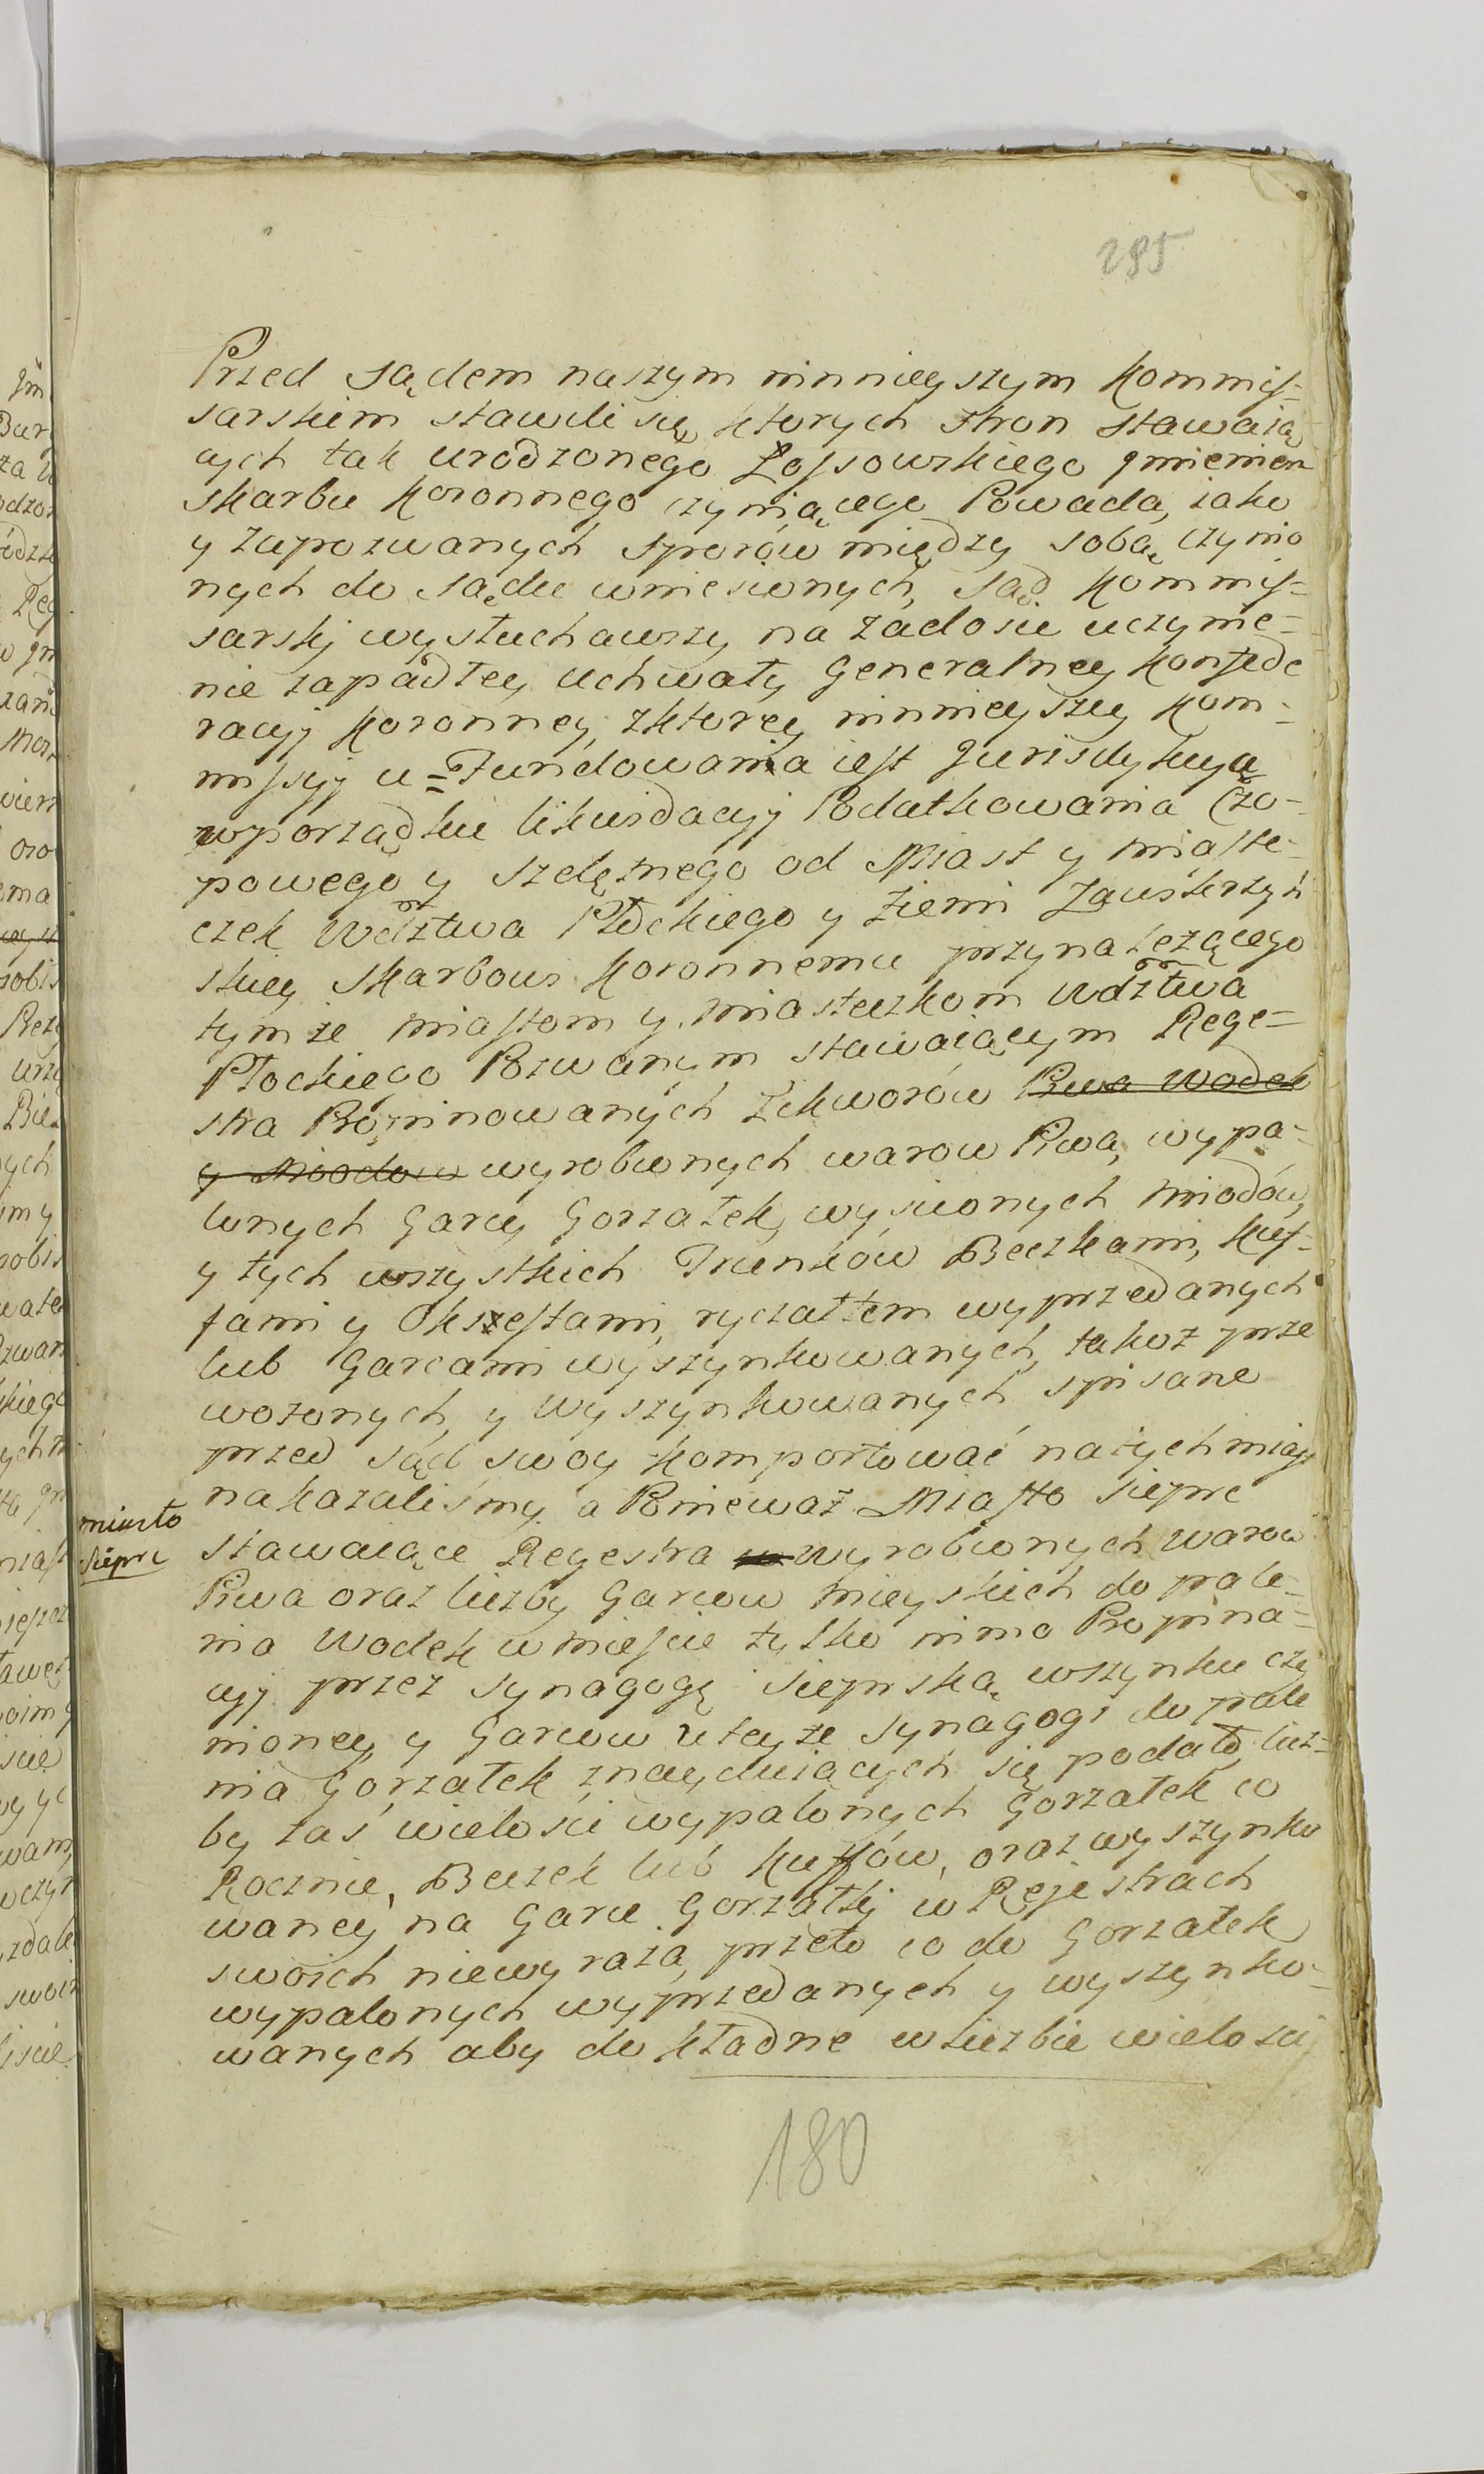 295
Przed Sądem naszym ninnieyszym Kommis=
sarskim stawili się, ktorych stron stawaią
cych tak urodzonego Łossowskiego Imieniem
Skarbu Koronnego czyniącego Powada, iako
y Zapozwanych sporów między sobą czynio
nych do Sądu wniesionych, Sąd Kommis=
sarskj wysłuchawszy na zadosic uczynie=
nie zapadłey Uchwały Generalney Konfede
racyj Koronney, zktorey ninnieyszey Kom=
missyj u=Fundowania iest Jurisdykcya
wporządku likwidacyj Podatkowania Czo=
powego y Szelężnego od Miast y miaste=
czek Wdztwa Płockiego y Ziemi Zawskrzyń
skiey Skarbowi Koronnemu przynależącego
tymże miastom y miasteczkom Wdztwa
Płockiego Pozwanym stawaiącym Rege=
stra Propinowanych Likworów Piwa Wodek
y Miodow wyrobionych warow Piwa, wypa=
lonych Garcy Gorzałek, wysyconych miodów,
y tych wszystkich Trunków Beczkami, Kuf=
fami y Okseftami, ryczałtem wyprzedanych
lub Garcami wyszynkowanych, takoż prze
wożonych, y wyszynkowanych spisane
przed Sąd swoy komportować natychmiast
nakazaliśmy, a Ponieważ Miasto Sieprc
miasto
Sieprc
stawaiące Regestra wyrobionych warow
Piwa oraz liczby Garcow mieyskich do pale=
nia Wodek wmieście tylko nimo Propina=
cyj przez Synagogę Sieprską wszynku czy
nioney, y Garcow uteyże Synagogi do pale
nia Gorzałek znayduiących się podało, licz=
by zaś wielosci wypalonych Gorzałek co
Rocznie, Beczek lub Kuffów, oraz wyszynko
waney na Garce Gorzałkj w Rejestrach
swoich niewyraża, przeto co do Gorzałek
wypalonych wyprzedanych y wyszynko=
wanych aby dokładne wliczbie wielosci
180